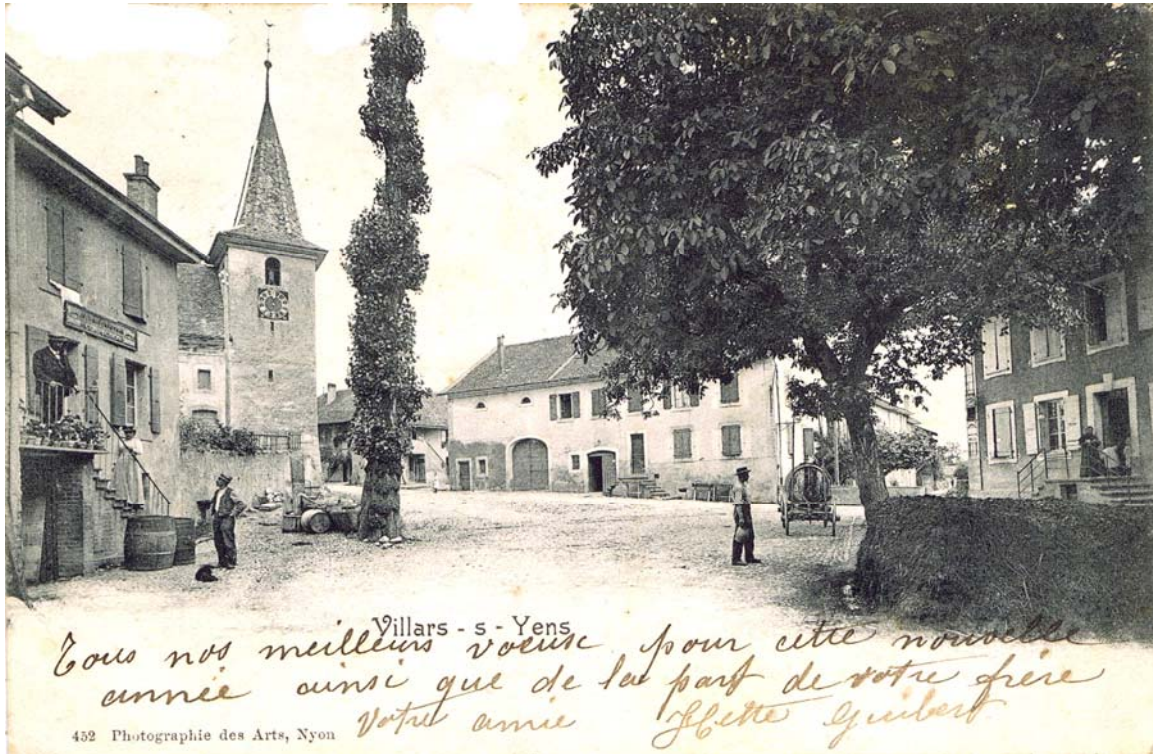 Villars - s - Yens
Tous nos meilleurs voeux pour cette nouvelle
année ainsi que de la part de votre frère
Votre amie Guibert
452 Photographie des Arts, Nyon